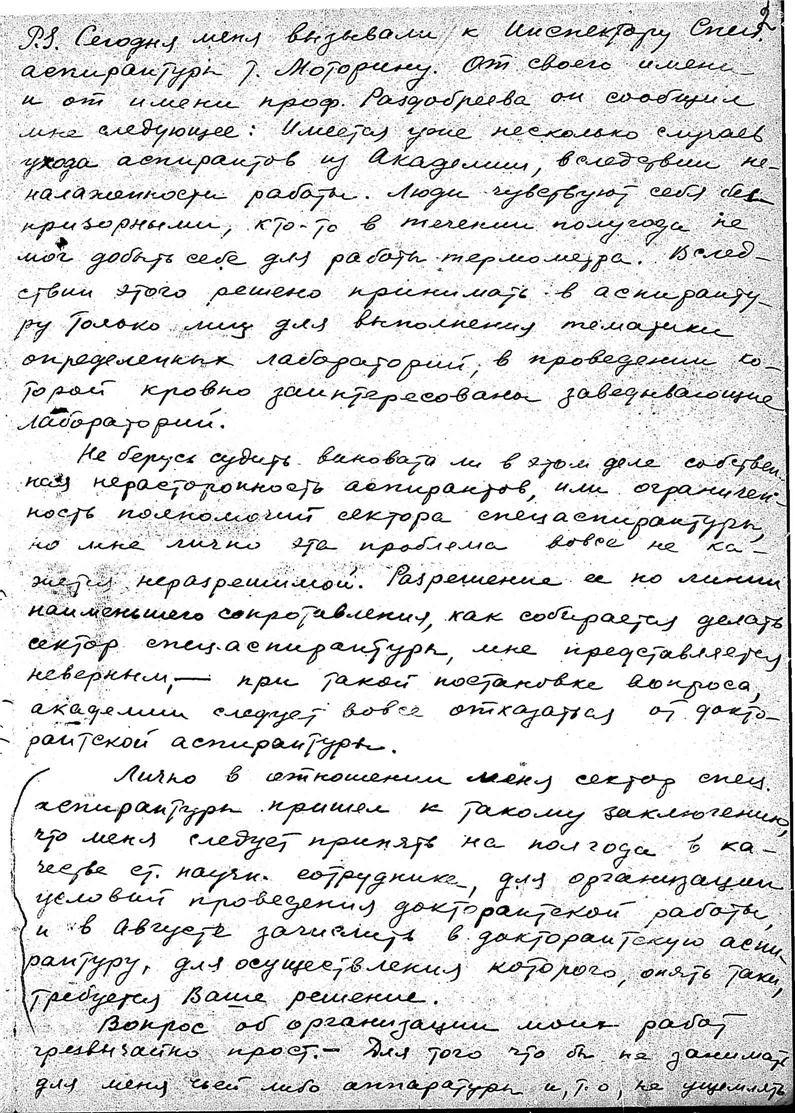 2
P.S. Сегодня меня вызывали к Инспектору Спец.
аспирантуры т. Моторину. От своего имени
и от имени проф. Раздобреева он сообщил
мне следующее: Имеется уже несколько случаев
ухода аспирантов из Академии, вследствии не-
налаженности работы. Люди чувствуют себя бес-
призорными, кто-то в течении полугода не
мог добыть себе для работы термометра. Вслед-
ствии этого решено принимать в аспиранту-
ру только лиц для выполнения тематики
определенных лабораторий, в проведении ко-
торой кровно заинтересованы заведывающие
лабораторий.
Не берусь судить виновата ли в этом деле собствен-
ная нерасторопность аспирантов, или ограничен-
ность полномочий сектора спецаспирантуры,
но мне лично эта проблема вовсе не ка-
жется неразрешимой. Разрешение ее по линии
наименьшего сопротивления, как собирается делать
сектор спец.аспирантуры, мне представляется
неверным, — при такой постановке вопроса,
академии следует вовсе отказаться от докто-
рантской аспирантуры.
Лично в отношении меня сектор спец.
аспирантуры пришел к такому заключению,
что меня следует принять на полгода в ка-
честве ст. научн. сотрудника, для организации
условий проведения докторантской работы,
и в Августе зачислить в докторантскую аспи-
рантуру, для осуществления которого, опять таки,
требуется Ваше решение.
Вопрос об организации моих работ
чрезвычайно прост. — Для того что бы не занимать
для меня чьей либо аппаратуры и, т.о, не ущемлять